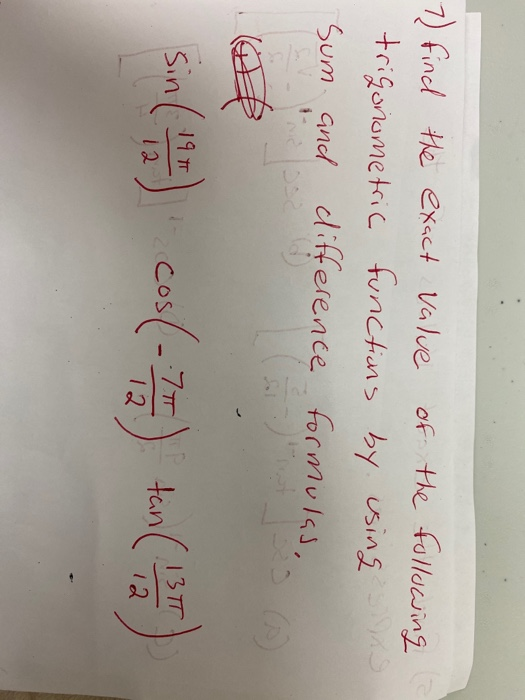 7) find the exact value of the following
trigonometric functions by using
Sum and difference formulas.
sin(19π/12) cos(-7π/12) tan(13π/12)